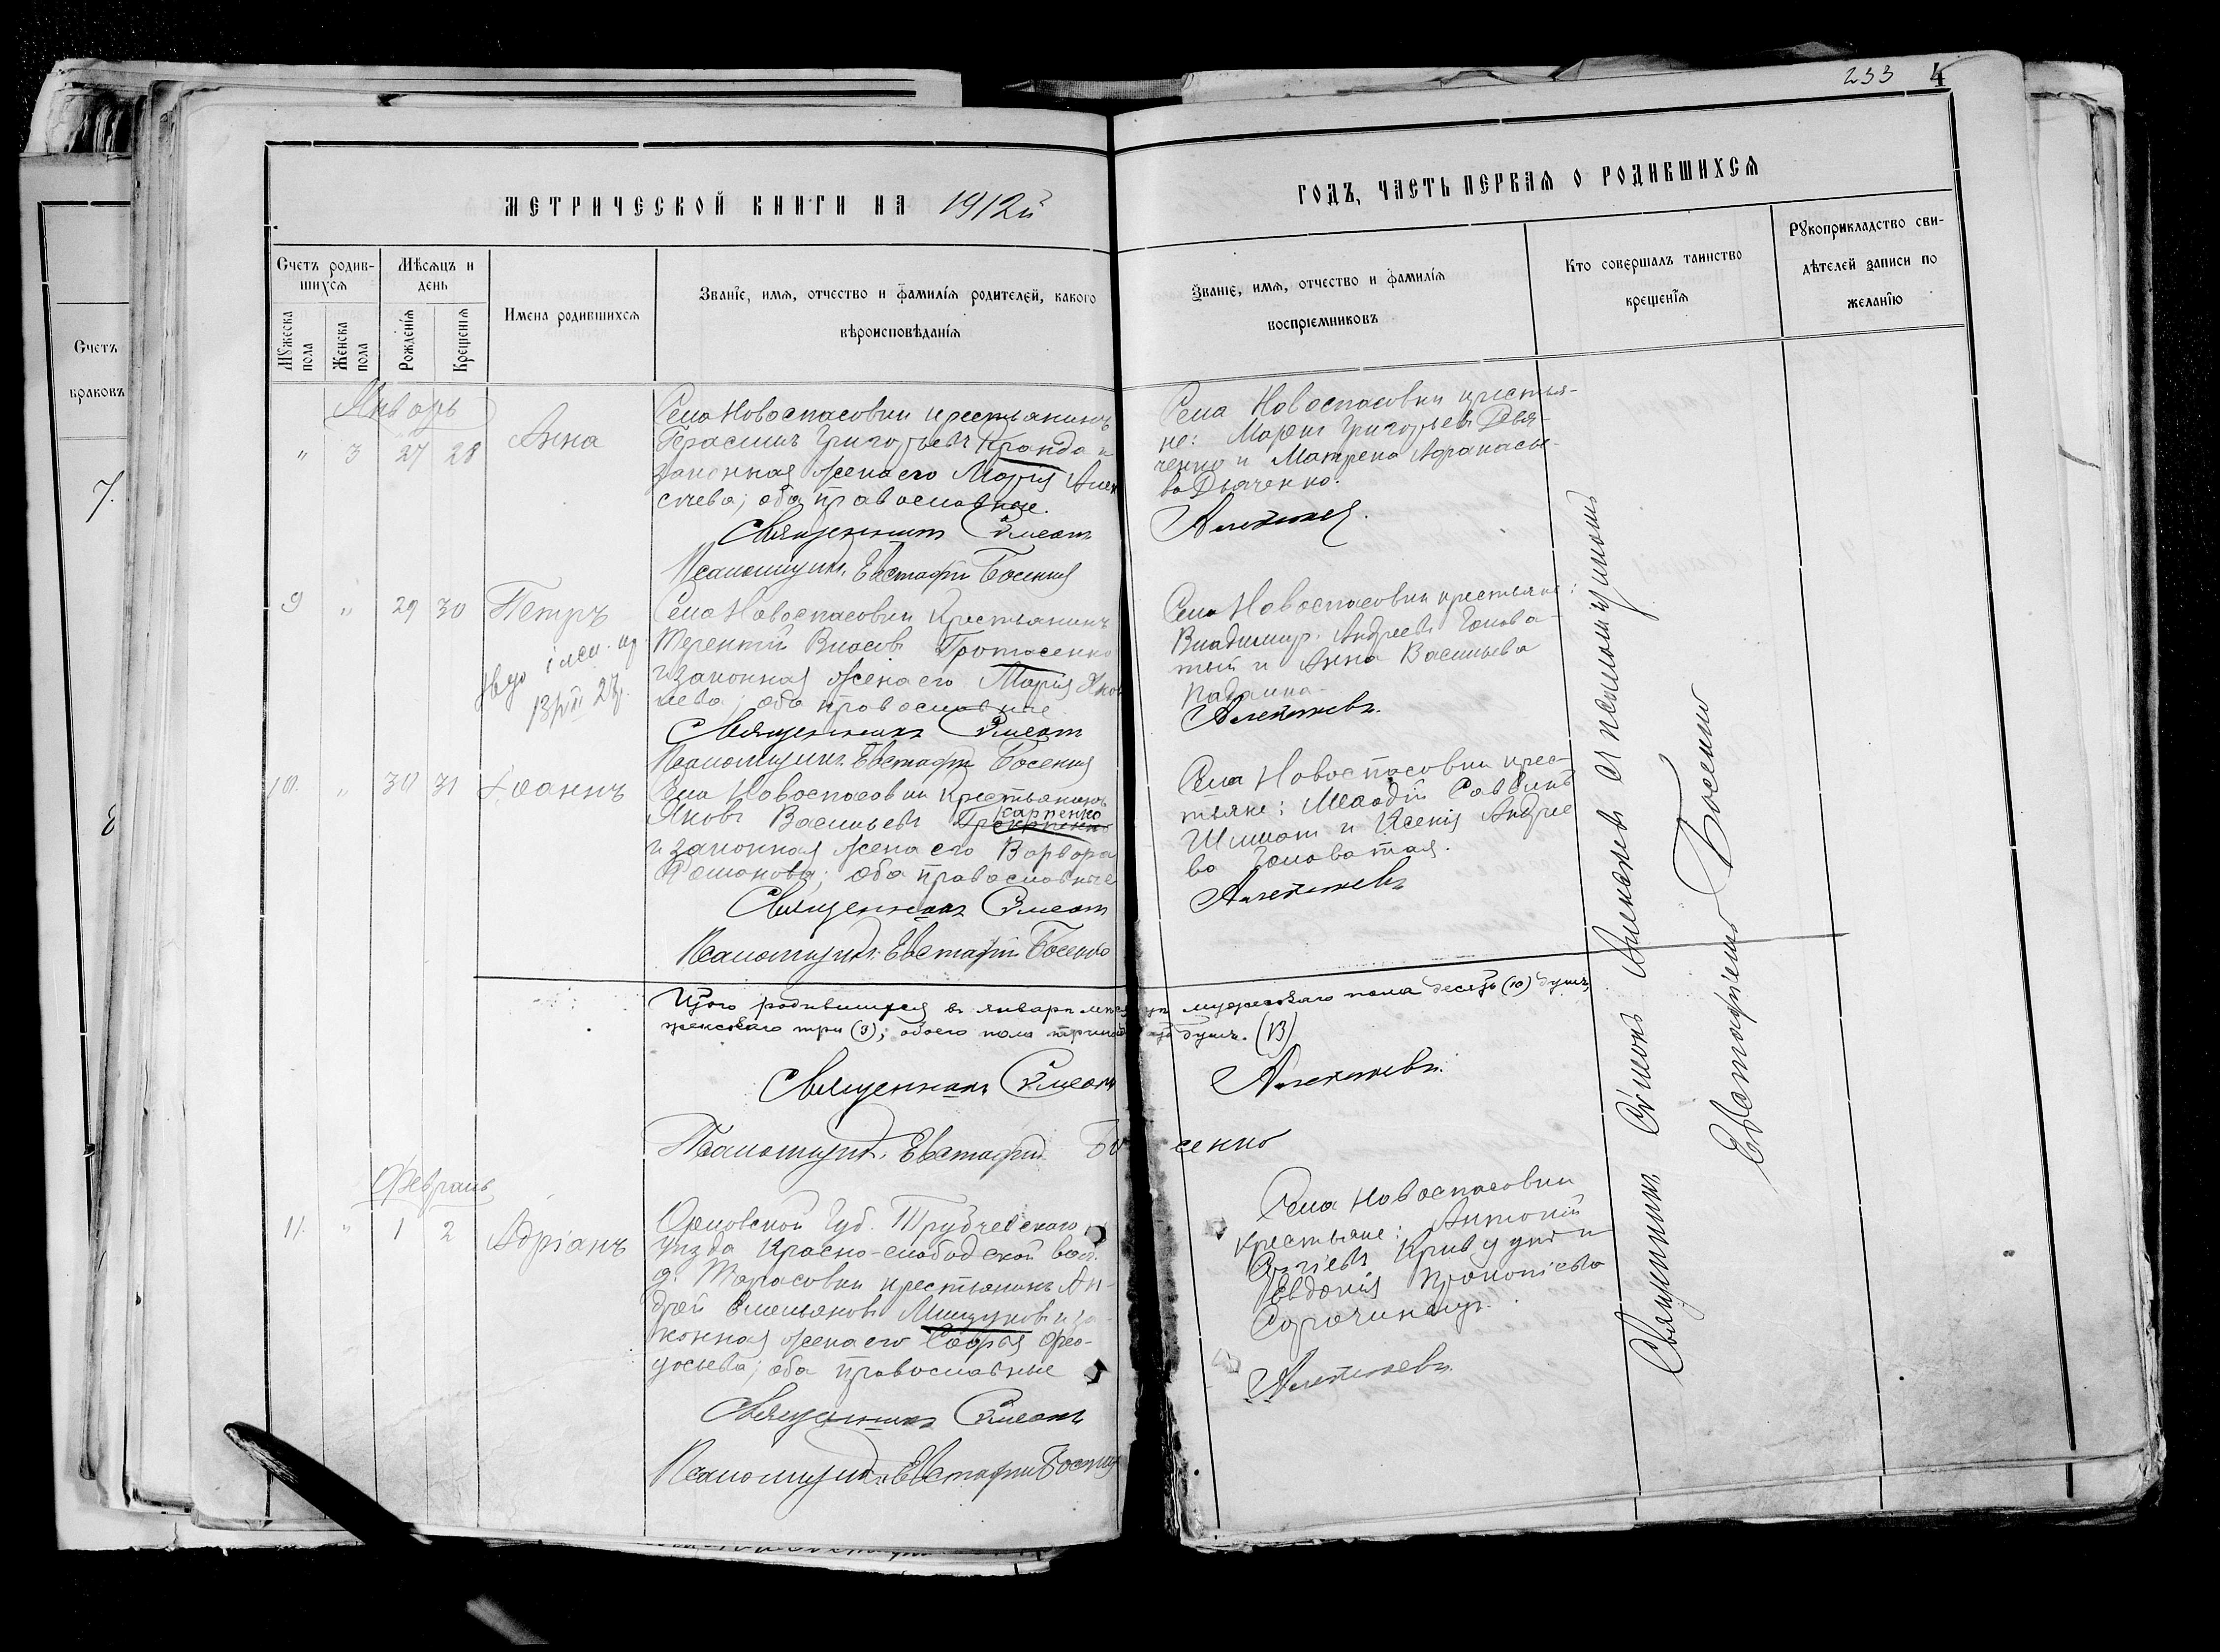 233 4
МЕТРИЧЕСКОЙ КНИГИ НА 1912й
ГОДЪ, ЧАСТЬ ПЕРВАЯ О РОДИВШИХСЯ
Счетъ родив-
шихся
Мужеска пола
Женска пола
Мѣсяцъ и
день
Рожденія
Крещенія
Имена родившихся
Званіе, имя, отчество и фамилія родителей, какого
вѣроисповѣданія
Званіе, имя, отчество и фамилія
воспріемниковъ
Кто совершалъ таинство
крещенія
Рукоприкладство сви-
дѣтелей записи по
желанію
Счетъ
браковъ
7.
8
Январь
" 3 27 28 Анна
Села Новоспасовки крестьянинъ
Герасимъ Григорьевъ и
законная жена его Марія Алек
сѣева; оба православные.
Священникъ Симеонъ
Псаломщикъ Евстафій Босенко
Села Новоспасовки крестья-
не: Григорьевъ Девя-
ченко и Матрена Афанасье-
ва Дьяченко.
Алексѣевъ.
9 " 29 30 Петръ
Села Новоспасовки крестьянинъ
Терентій Власовъ Протасенко
и законная жена его Марія Яков
лева; оба православные
Священникъ Симеонъ
Псаломщикъ Евстафій Босенко
Села Новоспасовки крестьяне:
Владимиръ Андреевъ Голова-
тый и Анна Васильева
Алексѣевъ.
10. " 30 31 Іоаннъ
Села Новоспасовки крестьянинъ
Яковъ Васильевъ
и законная жена его Варвара
Романова; оба православные
Священникъ Симеонъ
Псаломщикъ Евстафій Босенко
Села Новоспасовки крес-
тьяне: Саввинъ
и Ксенія Андрее
ва Головатая.
Алексѣевъ
Итого родившихся въ январѣ мѣсяцѣ мужескаго пола десять (10) душъ,
женскаго три (3), обоего пола тринадцать душъ. (13)
Священникъ Симеонъ Алексѣевъ.
Псаломщикъ Евстафій Босенко
Февраль
11. " 1 2 Адріанъ
Орловской Губ. Трубчевскаго
уѣзда Красно-слободской вол.
д. Тарасовки крестьянинъ Ан-
дрей Емельяновъ и за-
конная жена его Софья Ѳео-
досьева; оба православные
Священникъ Симеонъ
Псаломщикъ Евстафій Босенко
Села Новоспасовки
крестьяне: Антоній
и
Евдокія Прокопіева
Алексѣевъ.
Священникъ Симеонъ Алексѣевъ съ псаломщикомъ
Евстафіемъ Босенко